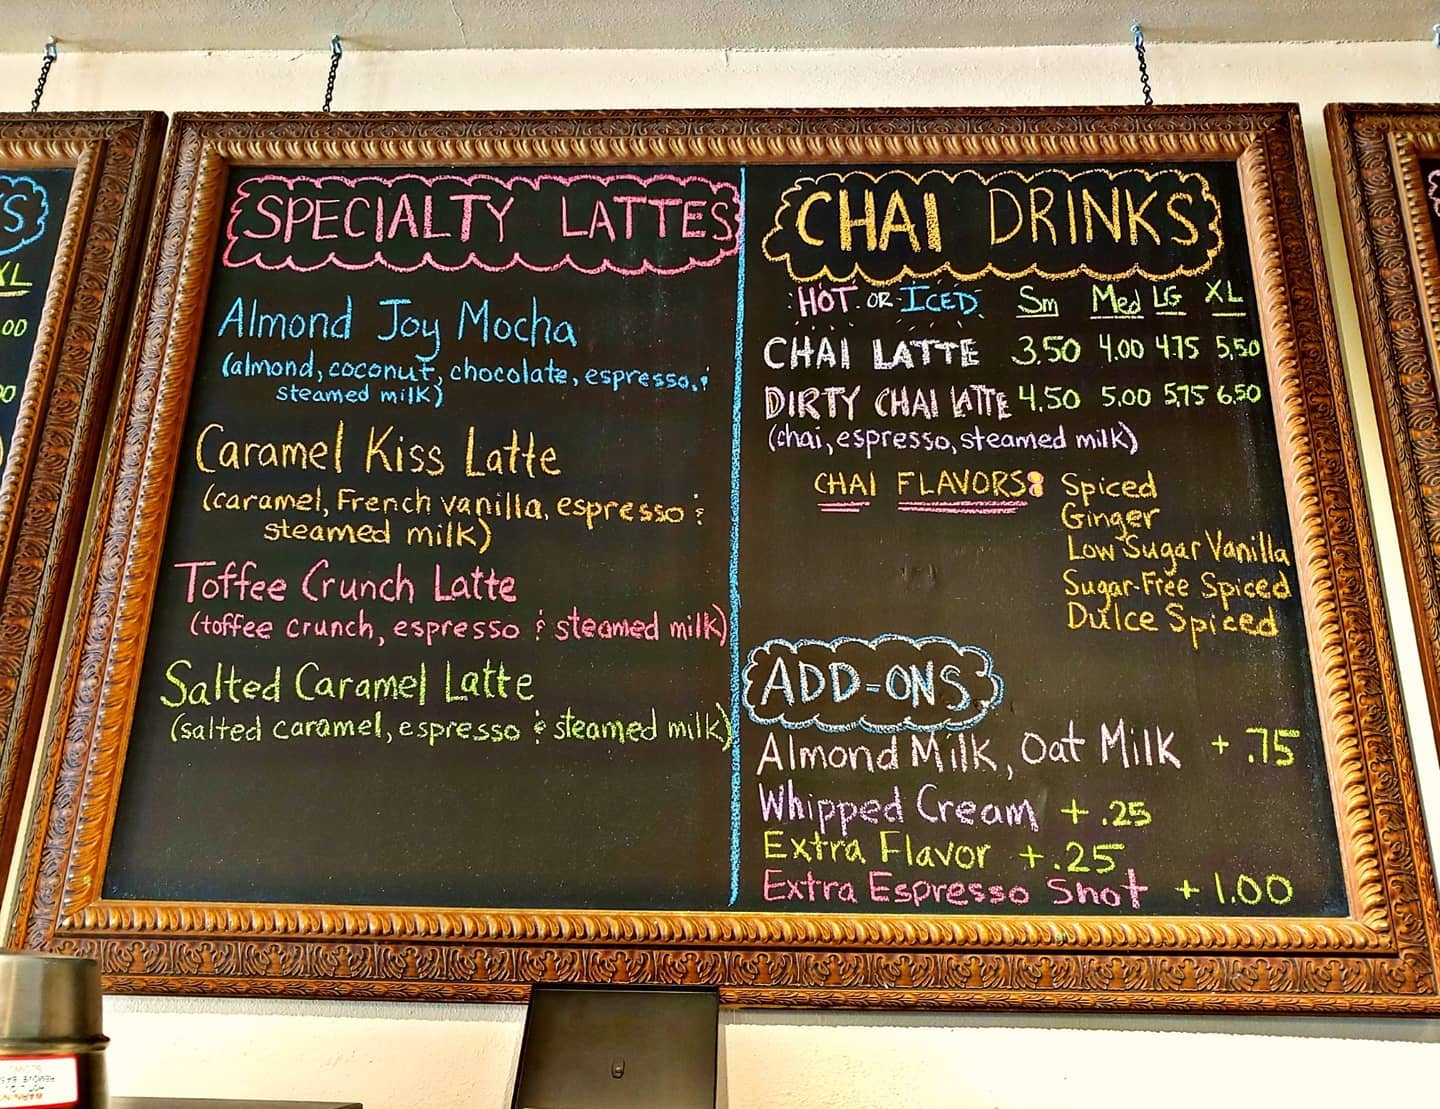 S
XL
.00
SPECIALTY LATTES
Almond Joy Mocha
(almond, coconut, chocolate, espresso, &
steamed milk)
Caramel Kiss Latte
(caramel, French vanilla, espresso &
steamed milk)
Toffee Crunch Latte
(toffee crunch, espresso & steamed milk)
Salted Caramel Latte
(salted caramel, espresso & steamed milk)
CHAI DRINKS
HOT OR ICED Sm Med LG XL
CHAI LATTE 3.50 4.00 4.75 5.50
DIRTY CHAI LATTE 4.50 5.00 5.75 6.50
(chai, espresso, steamed milk)
CHAI FLAVORS: Spiced
Ginger
Low Sugar Vanilla
Sugar-Free Spiced
Dulce Spiced
ADD-ONS
Almond Milk, Oat Milk +.75
Whipped Cream +.25
Extra Flavor +.25
Extra Espresso Shot +1.00